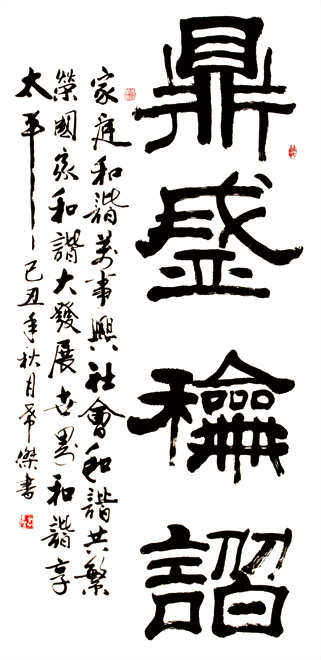 鼎盛龢諧
家庭和諧萬事興社會和諧共繁
榮國家和諧大發展世界和諧享
太平——己丑年秋月希傑書